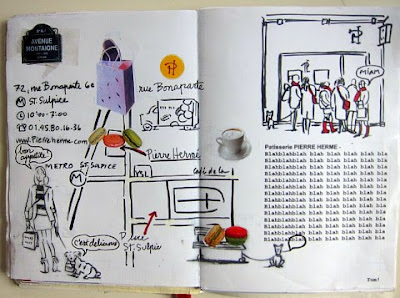 AVENUE
MONTAIGNE
72, rue Bonaparte 6e
M ST. Sulpice
10:00 - 7:00
01.45.80.16.36
www.Pierreherme.com
bon
appétit!
METRO ST. SULPICE
M
rue Bonaparte
PH
Pierre Hermé
VSL
Place
St. Sulpice
c'est délicieux
MIAM
Patisserie PIERRE HERME -
Blahblahblah blah blah blah blah bla
Blahblahblah blah blah blah blah bla
Blahblahblah blah blah blah blah bla
Blahblahblah blah blah blah blah bla
Blahblahblah blah blah blah blah bla
Blahblahblah blah blah blah blah bla
Blahblahblah blah blah blah blah bla
Blahblahblah blah blah blah blah bla
Blahblahblah blah blah blah blah bla
Blahblahblah blah blah blah blah bla